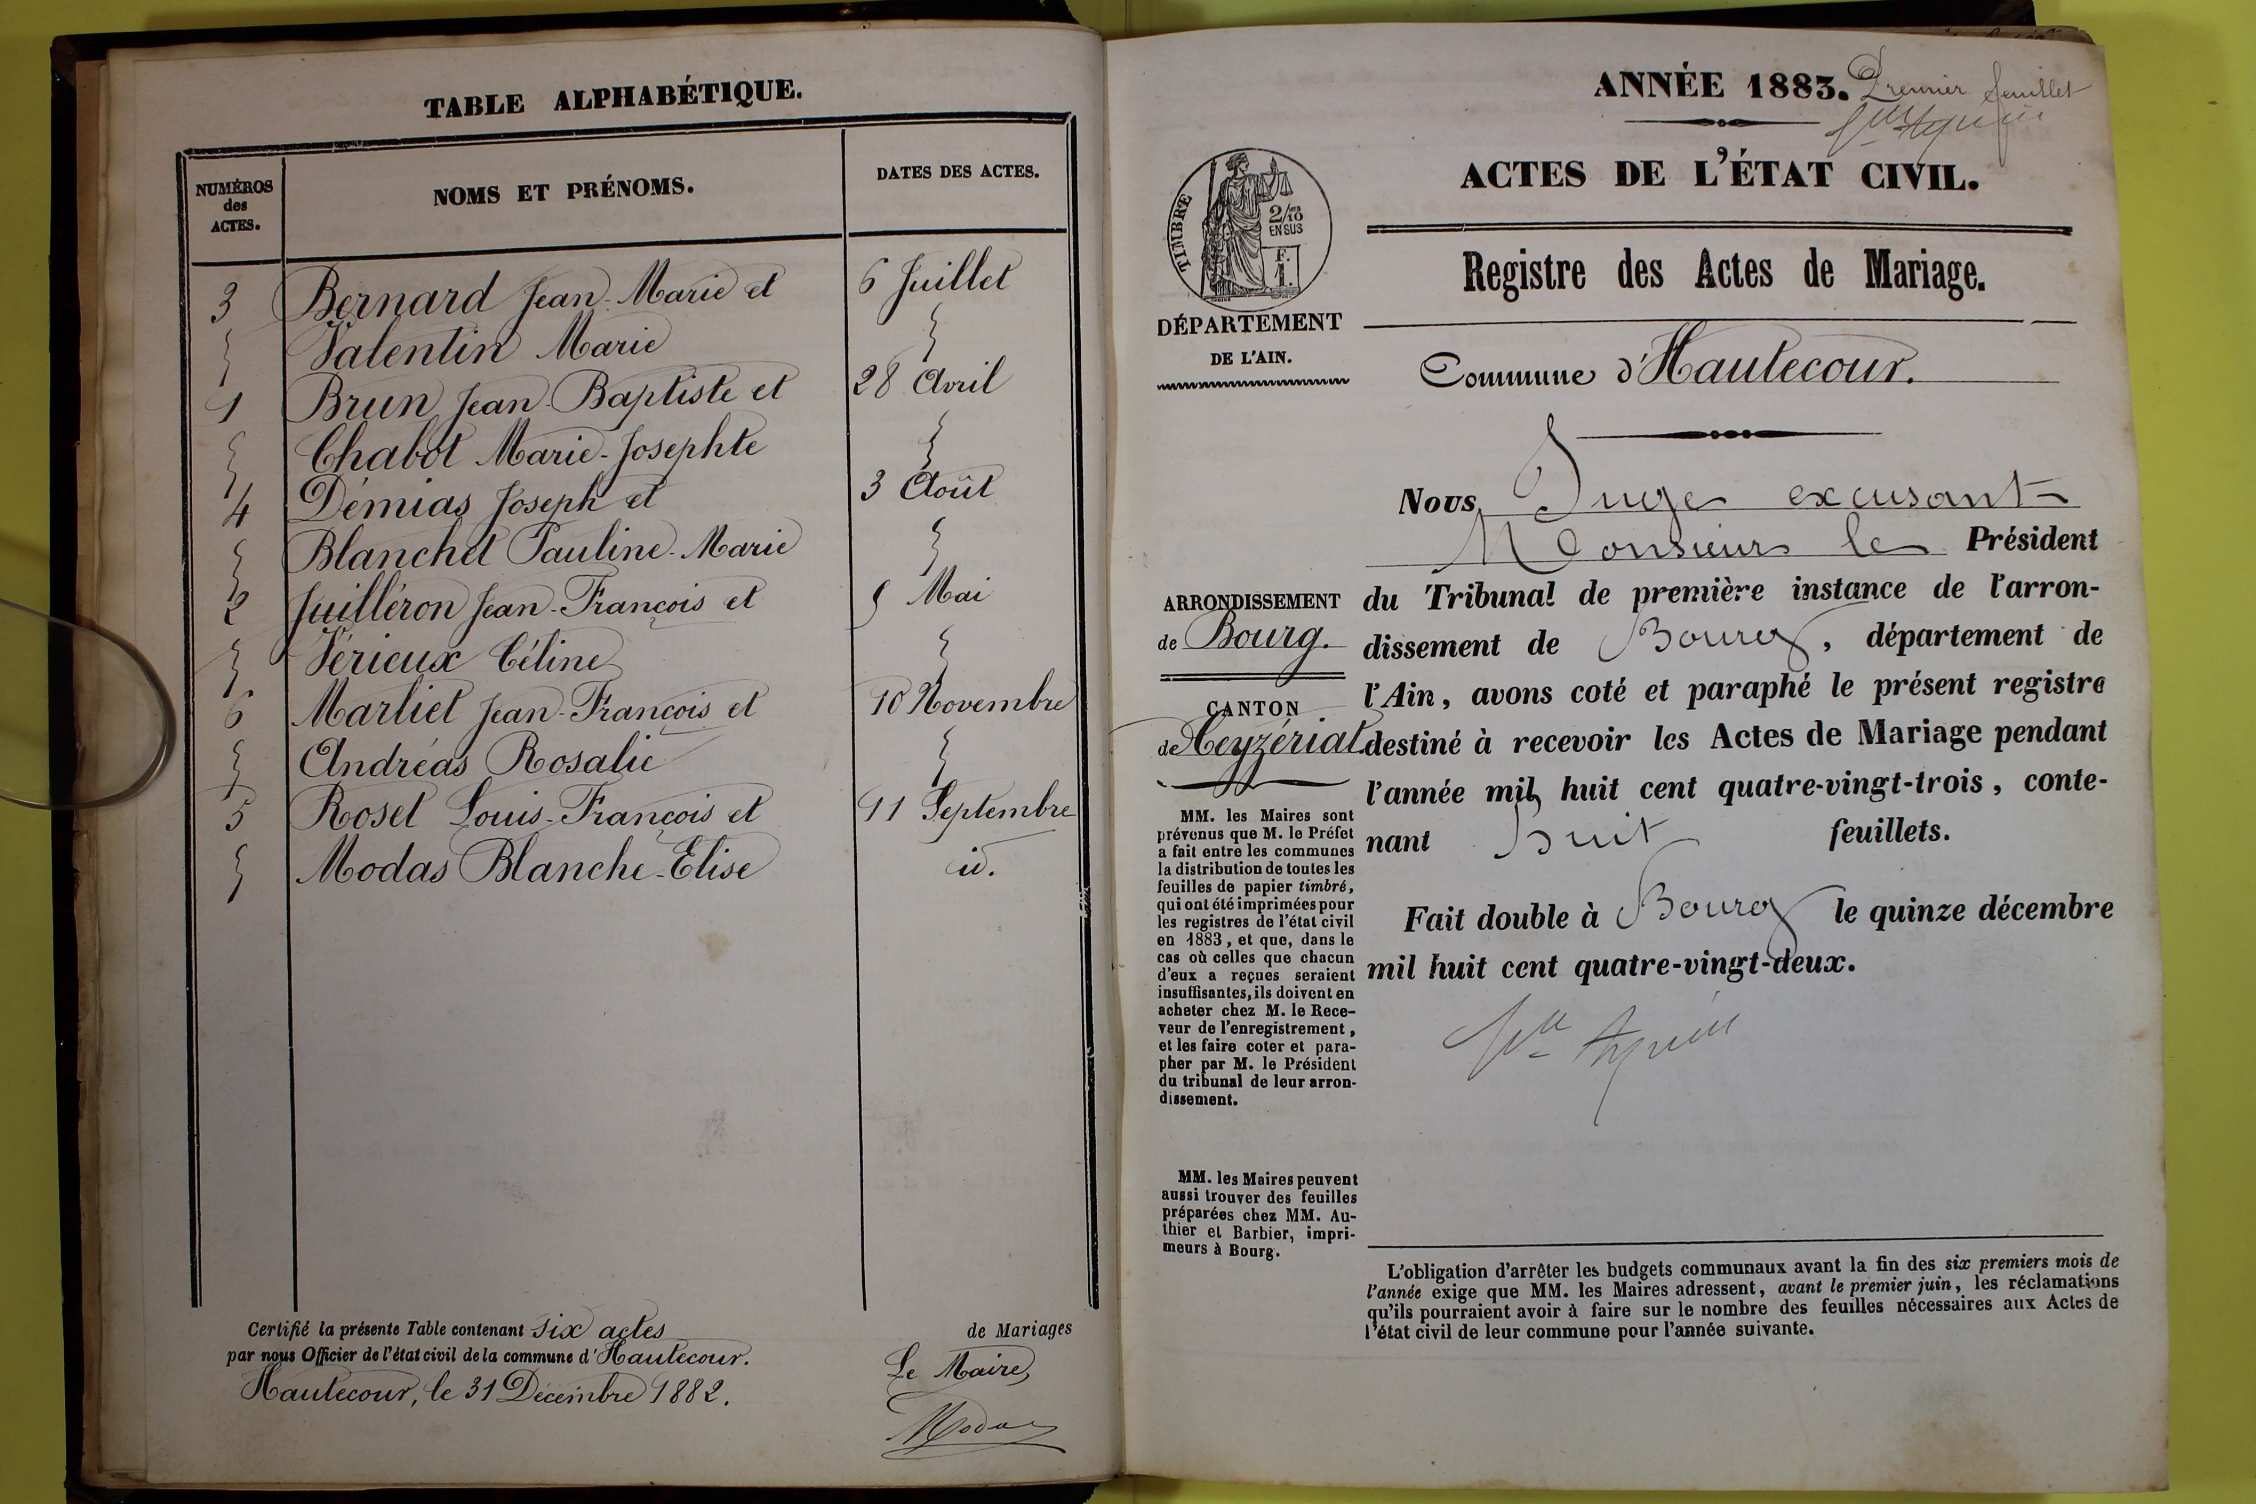 TABLE ALPHABÉTIQUE.
NUMÉROS des ACTES.
NOMS ET PRÉNOMS.
DATES DES ACTES.
3 Bernard Jean-Marie et 6 Juillet
Valentin Marie
1 Brun Jean-Baptiste et 28 Avril
Chabot Marie-Josephte
4 Démias Joseph et 3 Août
Blanchet Pauline-Marie
2 Juilléron Jean-François et 5 Mai
Vérieux Céline
6 Marliet Jean-François et 10 Novembre
Andréas Rosalie
5 Roset Louis-François et 11 Septembre
Modas Blanche-Elise id.
Certifié la présente Table contenant six actes de Mariages
par nous Officier de l'état civil de la commune d'Hautecour.
Hautecour, le 31 Décembre 1882.
Le Maire,
Modas
ANNÉE 1883. Premier feuillet
ACTES DE L'ÉTAT CIVIL.
TIMBRE
2/10 EN SUS
F. 1.
Registre des Actes de Mariage.
DÉPARTEMENT
DE L'AIN.
Commune d'Hautecour.
Nous Juge excusant
Monsieur le Président
du Tribunal de première instance de l'arron-
dissement de Bourg, département de
l'Ain, avons coté et paraphé le présent registre
destiné à recevoir les Actes de Mariage pendant
l'année mil huit cent quatre-vingt-trois, conte-
nant huit feuillets.
Fait double à Bourg le quinze décembre
mil huit cent quatre-vingt-deux.
ARRONDISSEMENT
de Bourg.
CANTON
de Ceyzériat.
MM. les Maires sont
prévenus que M. le Préfet
a fait entre les communes
la distribution de toutes les
feuilles de papier timbré,
qui ont été imprimées pour
les registres de l'état civil
en 1883, et que, dans le
cas où celles que chacun
d'eux a reçues seraient
insuffisantes, ils doivent en
acheter chez M. le Rece-
veur de l'enregistrement,
et les faire coter et para-
pher par M. le Président
du tribunal de leur arron-
dissement.
MM. les Maires peuvent
aussi trouver des feuilles
préparées chez MM. Au-
thier et Barbier, impri-
meurs à Bourg.
L'obligation d'arrêter les budgets communaux avant la fin des six premiers mois de
l'année exige que MM. les Maires adressent, avant le premier juin, les réclamations
qu'ils pourraient avoir à faire sur le nombre des feuilles nécessaires aux Actes de
l'état civil de leur commune pour l'année suivante.